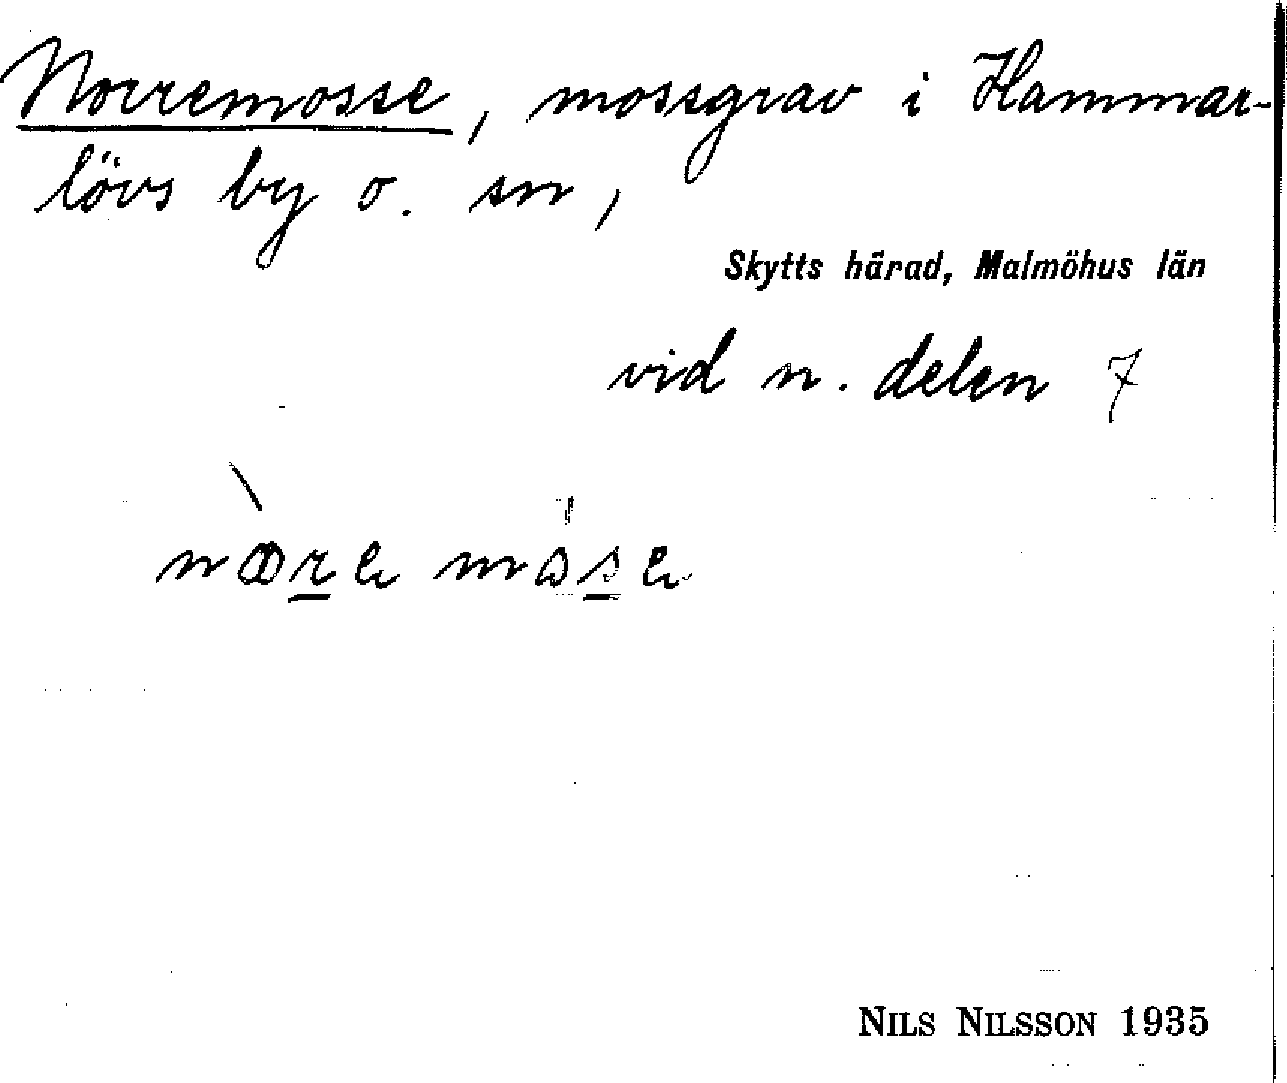 Norremosse, mossgrav i Hammar-
lövs by o. sn,
Skytts härad, Malmöhus län
vid n. delen 7
nꝏre måse
NILS NILSSON 1935